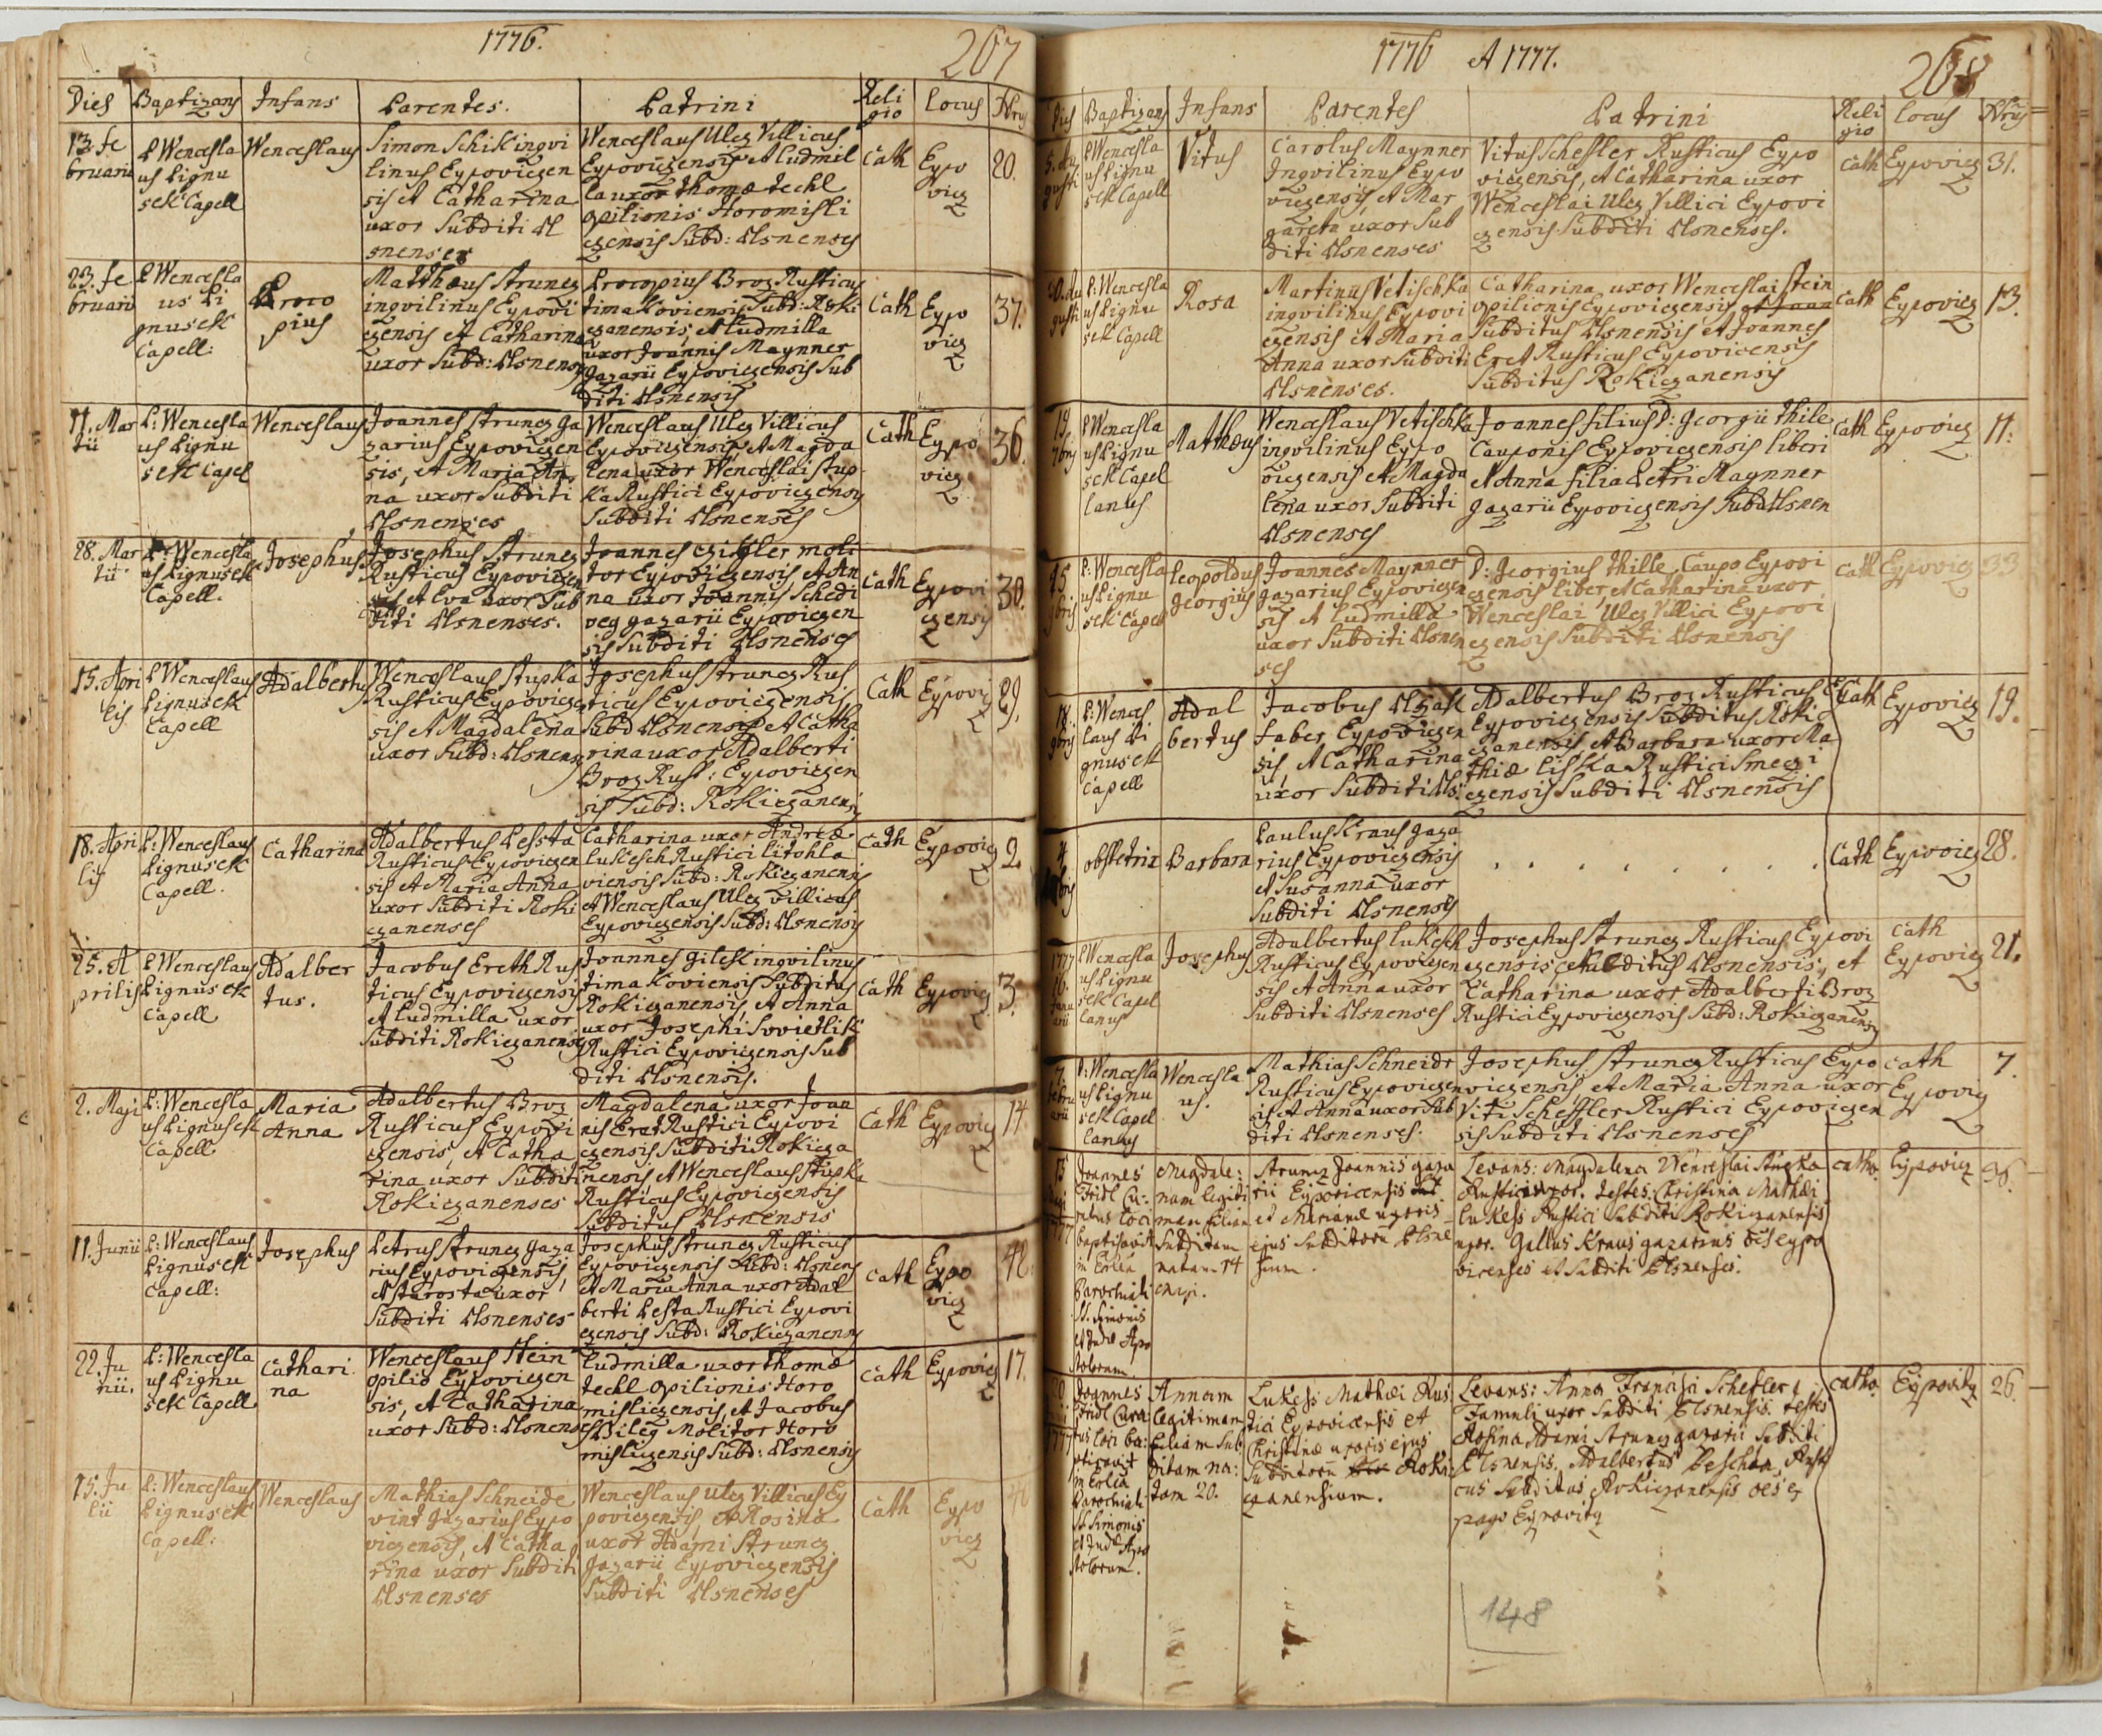 1776.
207
Dies
Baptizans
Infans
Parentes.
Patrini
Reli
gio
Locus
Nrus
13. fe
bruarii
P Wencesla
us Lignu
sek Capell
Wenceslaus
Simon Schik ingvi
linus Eypoviczen
sis et Catharina
uxor Subditi Ol
snenses
Wenceslaus Ulcz Villicus
Eypoviczensis et Ludmil
la uxor Thomæ Techl
opilionis Horomisli
czensis Subd: Olsnenses
Cath
Eypo
vicz
20.
23. fe
bruarii
P Wencesla
us Li
gnusek
Capell:
Proco
pius
Matthæus Struncz
ingvilinus Eypovi
czensis et Catharina
uxor Subd: Olsnenses
Procopius Broz Rusticus
timakoviensis Subd: Roki
czanensis, et Ludmilla
uxor Joannis Maynner
gazarii Eypoviczensis Sub
diti Olsnensis
Cath
Eypo
vicz
37.
11. Mar
tii
P: Wencesla
us Lignu
sek Capel
Wenceslaus
Joannes Struncz ga
zarius Eypoviczen
sis, et Maria An
na uxor Subditi
Olsnenses
Wenceslaus Ulcz Villicus
Eypoviczensis, et Magda
lena uxor Wenceslai Stup
ka Rustici Eypoviczensis
Subditi Olsnenses
Cath
Eypo
vicz
36.
28. Mar
tii
P: Wencesla
us Lignusek
Capell.
Josephus
Josephus Struncz
Rusticus Eypoviczen
sis et Eva uxor Sub
diti Olsnenses.
Joannes Cziffler moli
tor Eypoviczensis, et An
na uxor Joannis Schedi
veg gazarii Eypoviczen
sis Subditi Olsnenses
Cath
Eypovi
czensis
30.
15. Apri
lis
P Wenceslaus
Lignusek
Capell
Adalbertus
Wenceslaus Stupka
Rusticus Eypoviczen
sis et Magdalena
uxor Subd: Olsnenses
Josephus Struncz Rus
ticus Eypoviczensis
Subd Olsnensis et Catha
rina uxor Adalberti
Broz Rust: Eypoviczen
sis Subd: Rokiczanensis
Cath
Eypovicz
29.
18. Apri
lis
P: Wenceslaus
Lignusek
Capell.
Catharina
Adalbertus Pessta
Rusticus Eypoviczen
sis et Maria Anna
uxor Subditi Roki
czanenses
Catharina uxor Andreæ
Lukesch Rustici Litohla
viensis Subd: Rokiczanensis
et Wenceslaus Ulcz Villicus
Eypoviczensis Subd: Olsnensis
Cath
Eypovicz
2.
25. A
prilis
P Wenceslaus
Lignusek
Capell
Adalber
tus.
Jacobus Ereth Rus
ticus Eypoviczensis
et Ludmilla uxor
Subditi Rokiczanenses
Joannes Gilek ingvilinus
timakoviensis Subditus
Rokiczanensis, et Anna
uxor Josephi Swietlik
Rustici Eypoviczensis Sub
diti Olsnensis.
Cath
Eypovicz
3.
2. Maji
P: Wencesla
us Lignusek
Capell
Maria
Anna
Adalbertus Broz
Rusticus Eypovi
czensis, et Catha
rina uxor Subditi
Rokiczanenses
Magdalena uxor Joan
nis Eret Rustici Eypovi
czensis Subditi Rokicza
nensis et Wenceslaus Stupka
Rusticus Eypoviczensis
Subditus Olsnensis
Cath
Eypovicz
14
11. Junii
P: Wenceslaus
Lignusek
Capell:
Josephus
Petrus Struncz Gaza
rius Eypoviczensis,
et Starosta uxor
Subditi Olsnenses
Josephus Struncz Rusticus
Eypoviczensis Subd: Olsnens
et Maria Anna uxor Adal
berti Pesta Rustici Eypovi
czensis Subd: Rokiczanenis
Cath
Eypo
vicz
42.
22. Ju
nii.
P: Wencesla
us Lignu
sek Capell
Cathari
na
Wenceslaus Stein
opilio Eypoviczen
sis, et Catharina
uxor Subd: Olsnenses
Ludmilla uxor Thomæ
Techl opilionis Horo
misliczensis, et Jacobus
Bileg Molitor Horo
misliczensis Subd: Olsnensis
Cath
Eypovicz
17.
15. Ju
lii
P: Wenceslaus
Lignusek
Capell:
Wenceslaus
Mathias Schneide
vint gazarius Eypo
viczensis, et Catha
rina uxor Subditi
Olsnenses
Wenceslaus Ulcz Villicus Ey
poviczensis, et Rosina
uxor Adami Strunez
Gazarii Eypoviczensis
Subditi Olsnenses
Cath
Eypo
vicz
1776 et 1777.
268
Dies
Baptizans
Infans
Parentes
Patrini
Reli
gio
Locus
Nrus
5. Au
gusti
P Wencesla
us Lignu
sek Capell
Vitus
Carolus Maynner
Ingvilinus Eypo
viczensis, et Mar
gareta uxor Sub
diti Olsnenses
Vitus Schefler Rusticus Eypo
viczensis, et Catharina uxor
Wenceslai Ulcz Villici Eypovi
czensis Subditi Olsnenses.
Cath
Eypovicz
31.
Au
gusti
P: Wencesla
us Lignu
sek Capell
Rosa
Martinus Vetischka
ingvilinus Eypovi
czensis et Maria
Anna uxor Subditi
Olsnenses.
Catharina uxor Wenceslai Stein
opilionis Eypoviczensis et Joan
Subditus Olsnensis et Joannes
Eret Rusticus Eypovicensis
Subditus Rokiczanensis
Cath
Eypovicz
13.
19.
7bris
P Wencesla
us Lignu
sek Capel
lanus
Matthæus
Wenceslaus Vetischka
ingvilinus Eypo
viczensis et Magda
lena uxor Subditi
Olsnenses
Joannes filius D: Georgii Thile
Cauponis Eypoviczensis liberi
et Anna filia Petri Maynner
gazarii Eypoviczensis Subd: Olsnen
Cath
Eypovicz
11.
15
9bris
P: Wencesla
us Lignu
sek Capell
Leopoldus
Georgius
Joannes Maynner
gazarius Eypoviczen
sis et Ludmilla
uxor Subditi Olsnen
ses
D: Georgius Thille Caupo Eypovi
czensis liber et Catharina uxor
Wenceslai Ulcz Villici Eypovi
czensis Subditi Olsnensis
Cath
Eypovicz
33
18.
9bris
P: Wences
laus Li
gnusek
Capell
Adal
bertus
Jacobus Olzak
Faber Eypoviczen
sis, et Catharina
uxor Subditi Ols:
Adalbertus Broz Rusticus
Eypoviczensis Subditus Roki
czanensis et Barbara uxor Ma
thiæ Liska Rustici Smeczi
czensis Subditi Olsnensis
Cath
Eypovicz
19.
4
bris
obstetrix
Barbara
Paulus Kraus gaza
rius Eypoviczensis
et Susanna uxor
Subditi Olsnensis
. . . . . . . .
Cath
Eypovicz
28.
1777
16.
Janu
arii
P Wencesla
us Lignu
sek Capel
lanus
Josephus
Adalbertus Lukesch
Rusticus Eypoviczen
sis et Anna uxor
Subditi Olsnenses
Josephus Strunez Rusticus Eypovi
czensis Subditus Olsnensis, et
Catharina uxor Adalberti Broz
Rustici Eypoviczensis Subd: Rokiczanensis
Cath
Eypovicz
21.
7.
Febru
arii
P: Wencesla
us Lignu
sek Capel
lanus
Wencesla
us.
Mathias Schneidr
Rusticus Eypoviczen
sis et Anna uxor Sub
diti Olsnenses.
Josephus Strunez Rusticus Eypo
viczensis, et Maria Anna uxor
Viti Scheffler Rustici Eypoviczen
sis Subditi Olsnenses
Cath
Eypovicz
7.
15
1777
Joannes
Fridl Cu-
ratus loci
baptisavit
in Ecclia
Parochiali
SS. Simonis
et Judæ Apo
stolorum.
Magdale:
nam legiti
mam filiam
Subditam
natam 14
Maji.
Strunez Joannis gaza
rii Eypovicensis
et Marianæ uxoris
ejus Subditorū Olsne
sium.
Levans: Magdalena Wenceslai Stupka
Rustici uxor. Testes: Christina Mathæi
Lukess Rustici Subditi Rokiczanensis
uxor. Gallus Kraus gazarius oēs eypo
vicenses et Subditi Elsnenses.
catho.
Eypovicz
20
1777
Joannes
Fridl Cura
tus loci ba:
ptisavit
in Ecclia
Parochiali
SS Simonis
et Judæ Apo
stolorum.
Annam
legitimam
filiam Sub
ditam na:
tam 20.
Lukess Mathæi Rus
tici Eypovicensis et
Christinæ uxoris ejus
Subditorū Roki
czanensium.
Levans: Anna Francisci Schefler
Famuli uxor Subditi Elsnensis. Testes
Rosina Adami Strunez gazarii Subditi
Elsnensis. Adalbertus Peschta Rusti
cus Subditus Rokiczanensis oēs ex
pago Eypovitz
catho
Eypovitz
26.
148